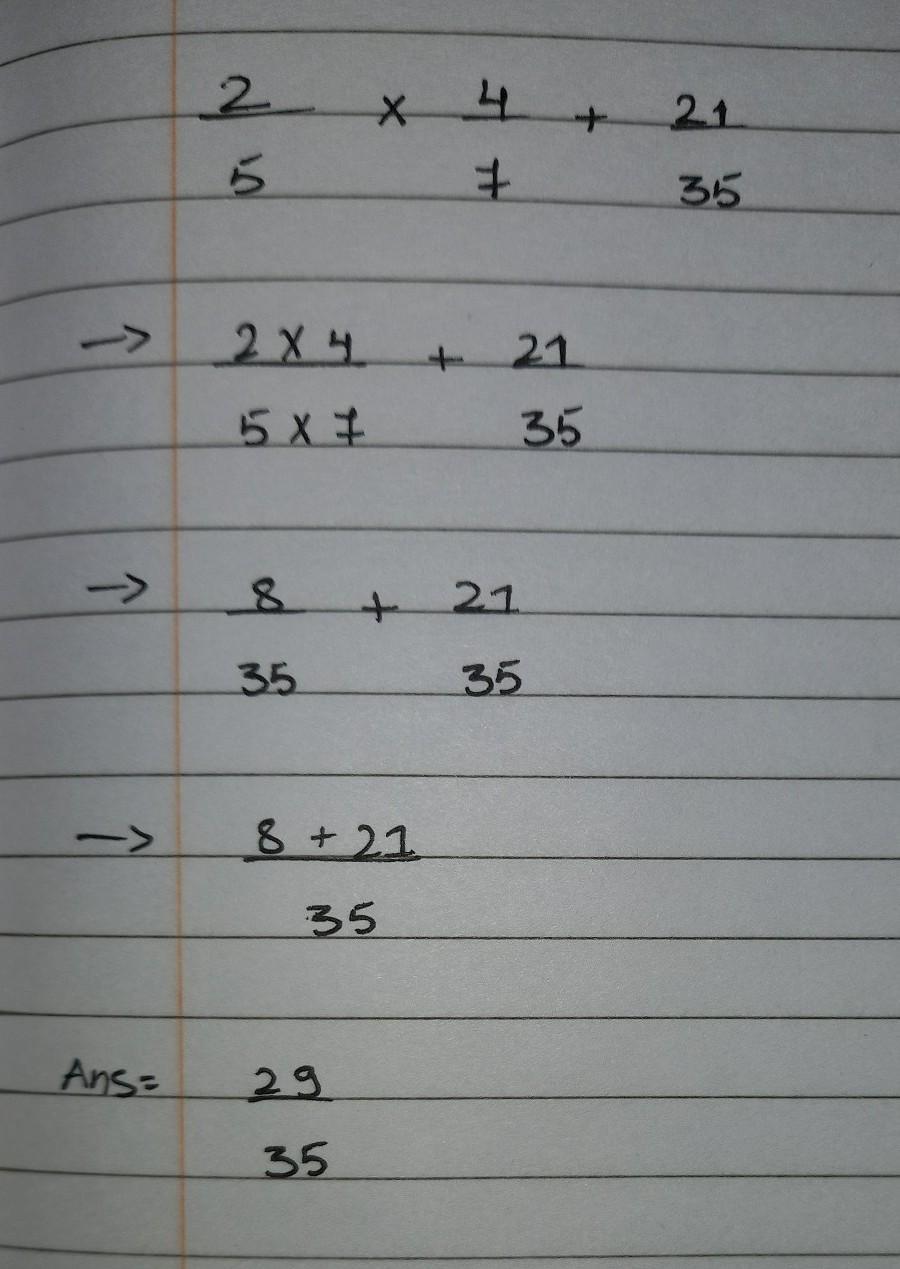 2/5 × 4/7 + 21/35
→ 2 × 4/5 × 7 + 21/35
→ 8/35 + 21/35
→ 8 + 21/35
Ans= 29/35